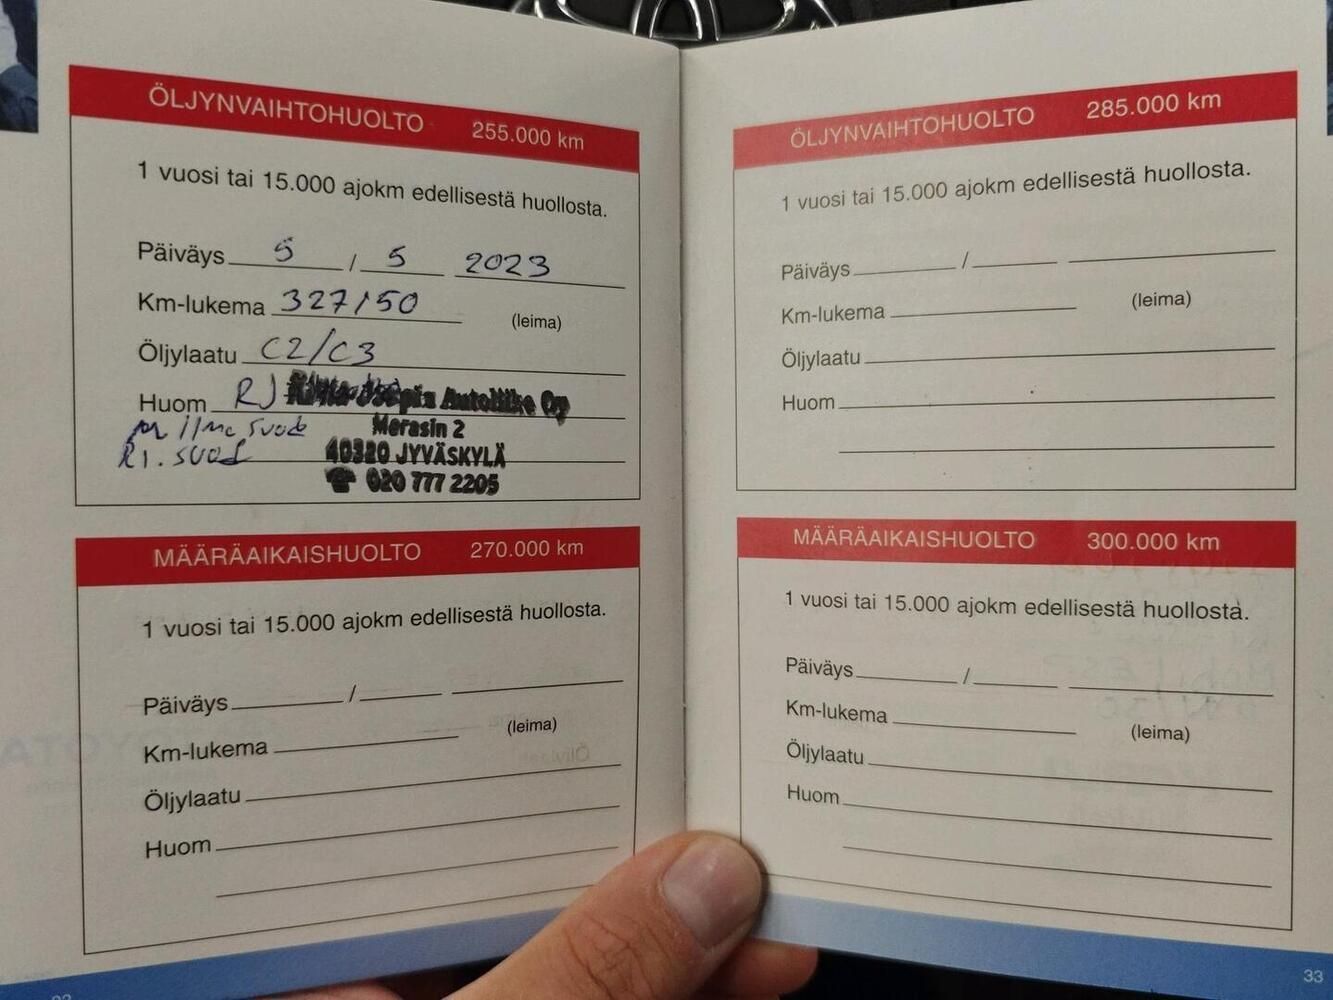 ÖLJYNVAIHTOHUOLTO 255.000 km
1 vuosi tai 15.000 ajokm edellisestä huollosta.
Päiväys 5 / 5 2023
Km-lukema 327150
(leima)
Öljylaatu C2/C3
Huom RJ Autoliike Oy
ilma suod
RI. suod
Merasin 2
40320 JYVÄSKYLÄ
☎ 020 777 2205
MÄÄRÄAIKAISHUOLTO 270.000 km
1 vuosi tai 15.000 ajokm edellisestä huollosta.
Päiväys / 
Km-lukema
(leima)
Öljylaatu
Huom
ÖLJYNVAIHTOHUOLTO 285.000 km
1 vuosi tai 15.000 ajokm edellisestä huollosta.
Päiväys /
Km-lukema
(leima)
Öljylaatu
Huom
MÄÄRÄAIKAISHUOLTO 300.000 km
1 vuosi tai 15.000 ajokm edellisestä huollosta.
Päiväys /
Km-lukema
(leima)
Öljylaatu
Huom
33